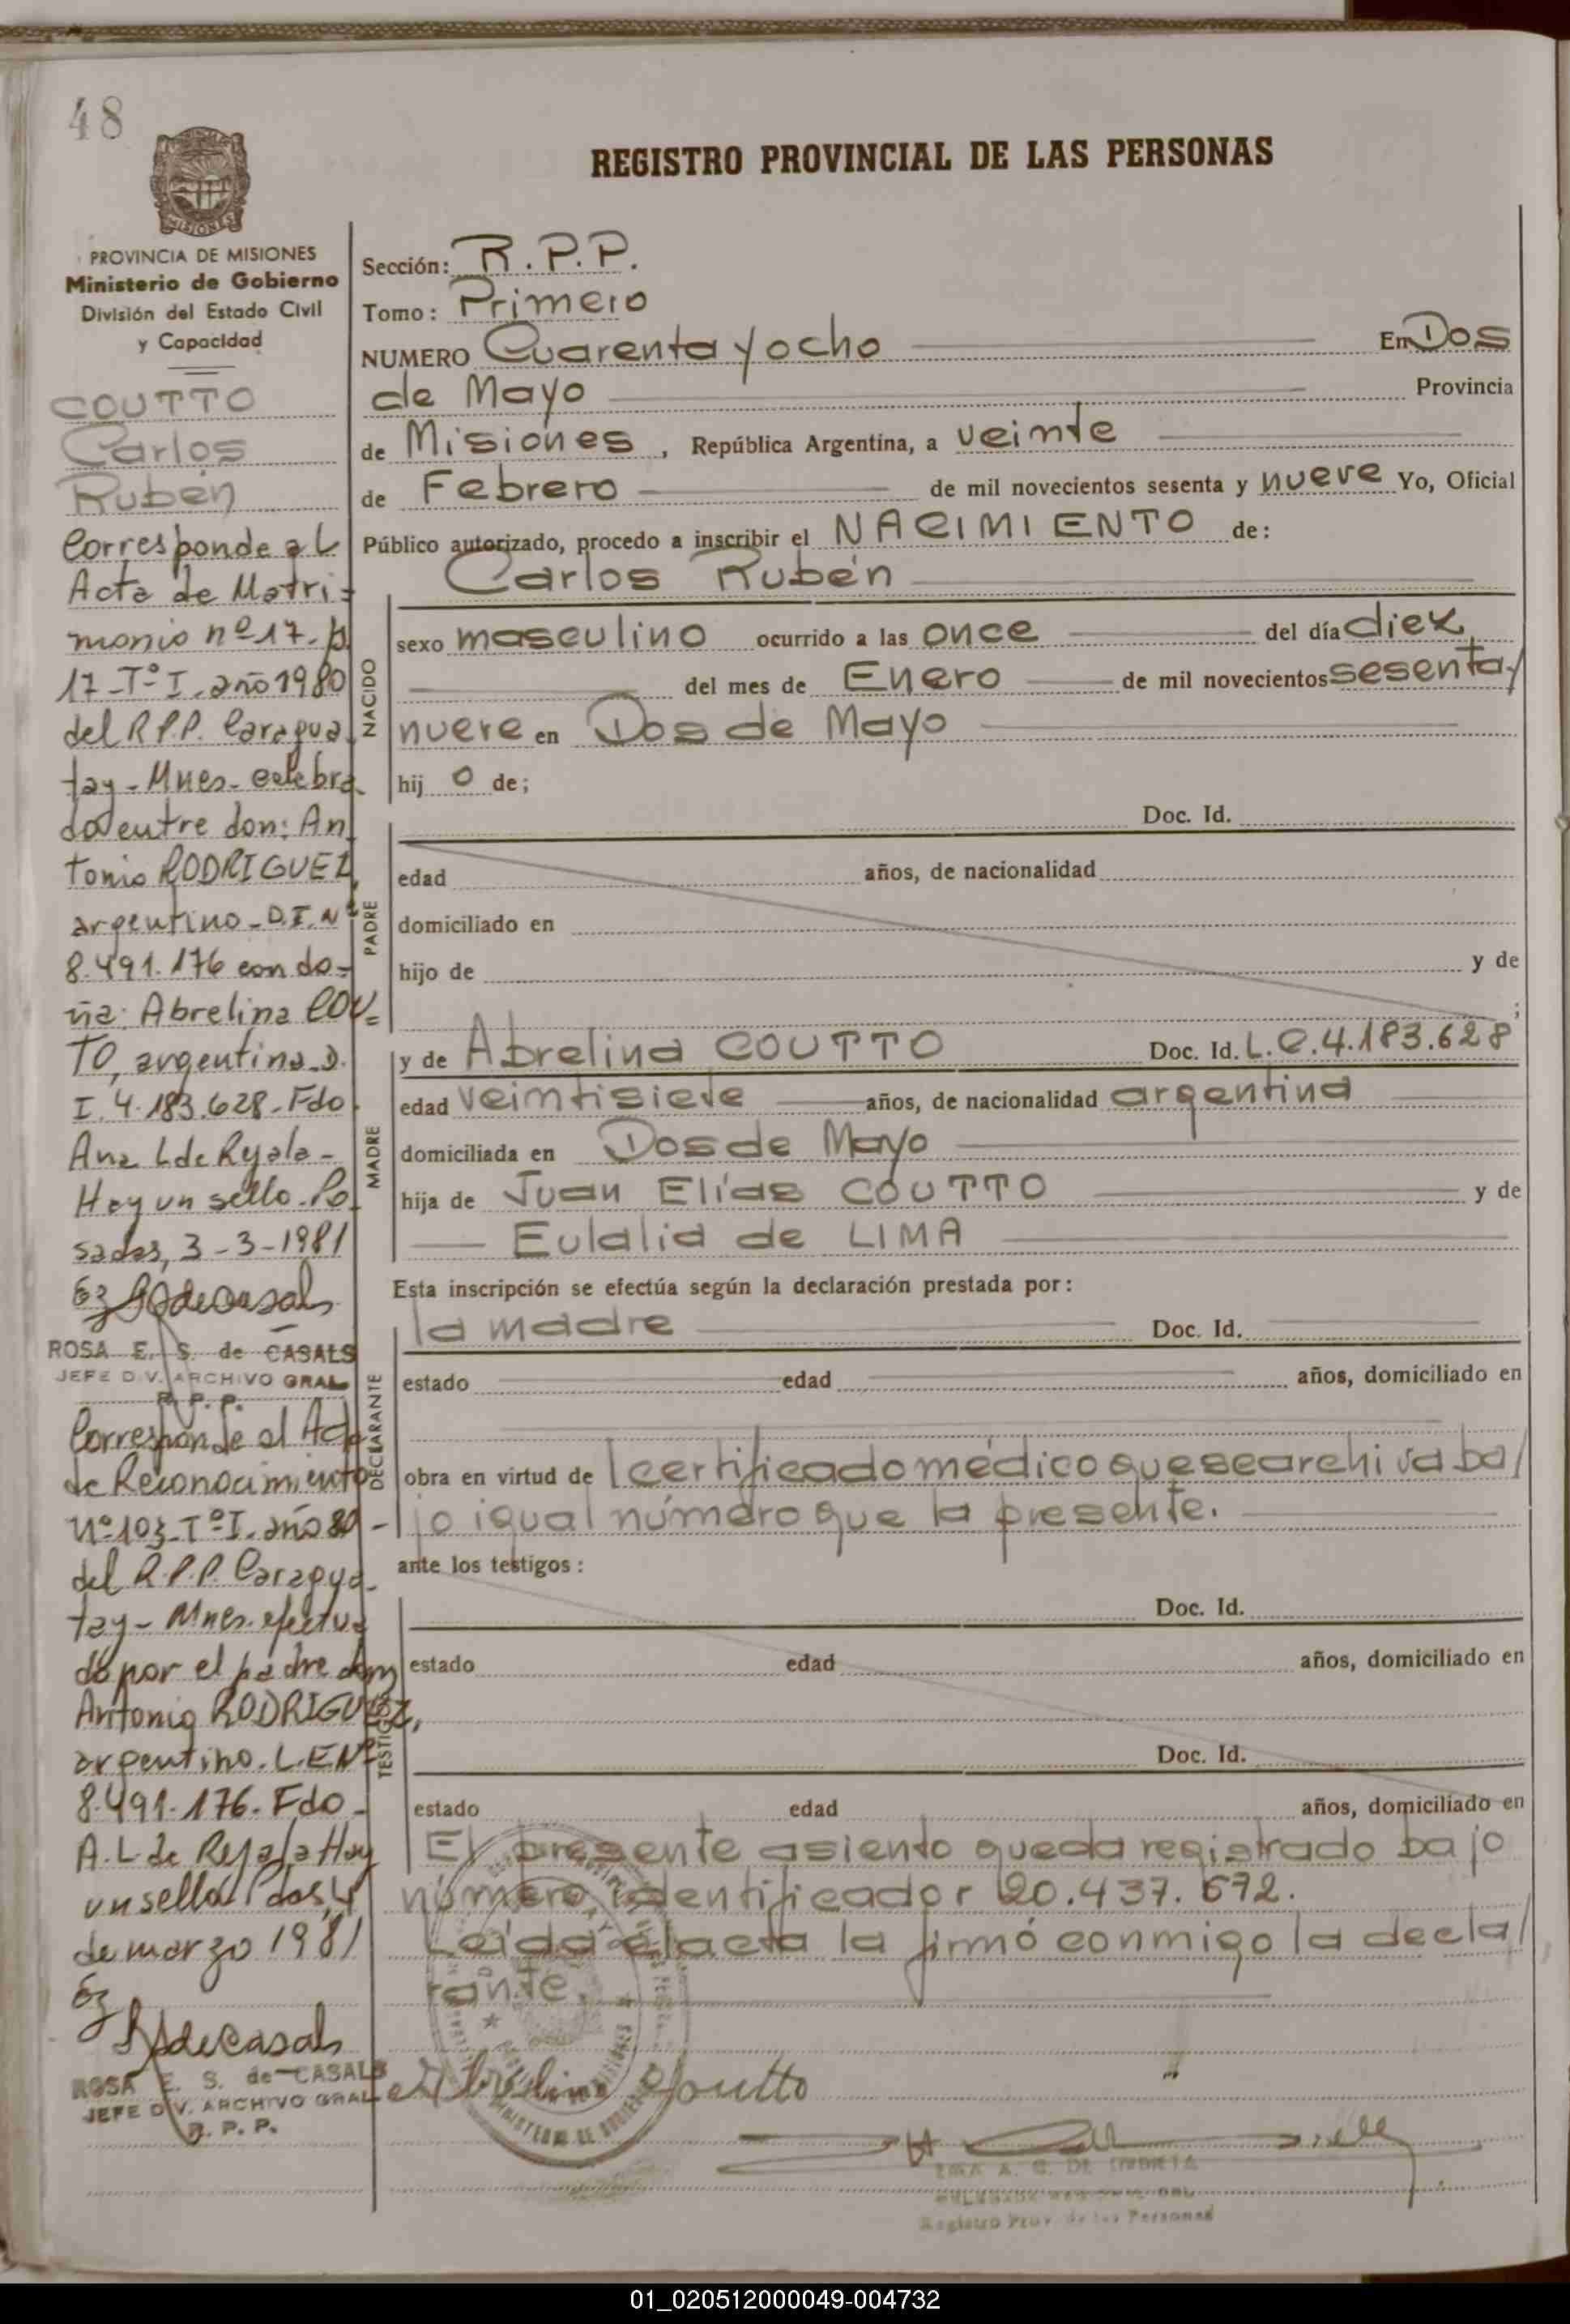 48
MISIONES
PROVINCIA DE MISIONES
Ministerio de Gobierno
División del Estado Civil
y Capacidad
COUTTO
Carlos
Rubén
Corresponde al
Acta de Matri=
monio nº 17. f
17-Tº I. año 1980
del R.P.P. Caragua
tay - Mnes. celebra
do entre don: An
tonio RODRIGUEZ,
argentino - D.I. Nº
8.491.176 con do=
ña: Abrelina COU=
TO, argentina. D.
I. 4.183.628 - Fdo.
Ana L de Rejala -
Hay un sello. Po
sadas, 3-3-1981
ROSA E. S. de CASALS
JEFE DIV. ARCHIVO GRAL
R. P. P.
Corresponde al Acta
de Reconocimiento
Nº 103 - Tº I. año 80 -
del R.P.P. Caragua
tay - Mnes. efectua
do por el padre don
Antonio RODRIGUEZ,
argentino. L.E Nº
8.491.176. Fdo -
A. L. de Rejala Hay
un sello Pdas, 4
de marzo 1981
ROSA E. S. de CASALS
JEFE DIV. ARCHIVO GRAL
R. P. P.
REGISTRO PROVINCIAL DE LAS PERSONAS
Sección: R.P.P.
Tomo: Primero
NUMERO Cuarenta y ocho En Dos
de Mayo Provincia
de Misiones, República Argentina, a veinte
de Febrero de mil novecientos sesenta y nueve Yo, Oficial
Público autorizado, procedo a inscribir el NACIMIENTO de:
Carlos Rubén
NACIDO
sexo masculino ocurrido a las once del día diez
del mes de Enero de mil novecientos sesenta y
nueve en Dos de Mayo
hij o de;
PADRE
Doc. Id.
edad años, de nacionalidad
domiciliado en
hijo de y de
;
MADRE
y de Abrelina COUTTO Doc. Id. L.C. 4.183.628
edad veintisiete años, de nacionalidad argentina
domiciliada en Dos de Mayo
hija de Juan Elías COUTTO y de
Eulalia de LIMA
Esta inscripción se efectúa según la declaración prestada por:
DECLARANTE
la madre Doc. Id.
estado edad años, domiciliado en
obra en virtud de l certificado médico que se archiva ba/
jo igual número que la presente.
ante los testigos:
TESTIGOS
Doc. Id.
estado edad años, domiciliado en
Doc. Id.
estado edad años, domiciliado en
El presente asiento queda registrado bajo
número identificador 20.437.672.
Leída el acta la firmó conmigo la decla/
rante.
Abrelina Coutto
Registro Prov. de las Personas
01_020512000049-004732